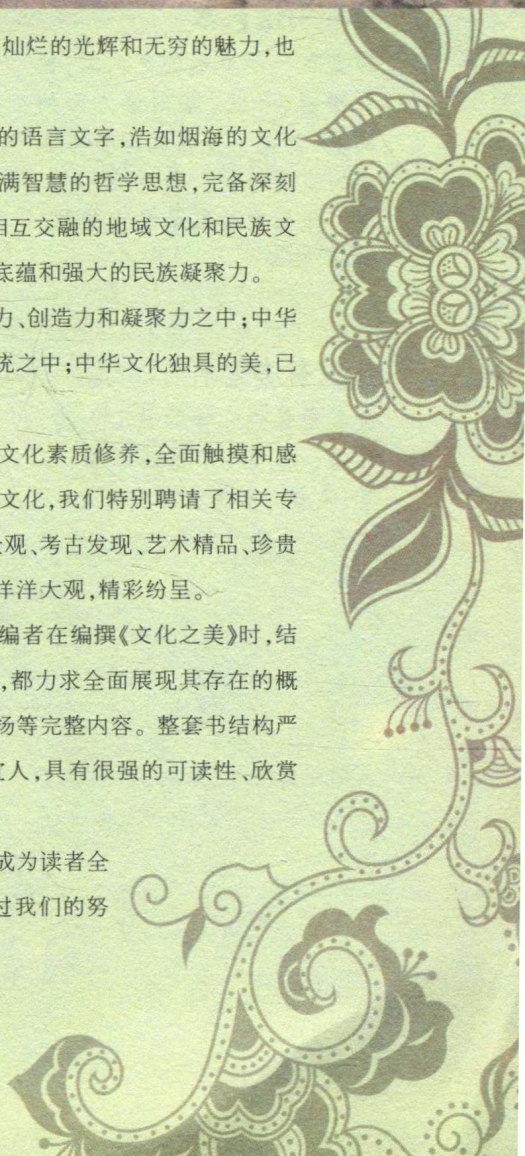 灿烂的光辉和无穷的魅力,也
的语言文字,浩如烟海的文化
满智慧的哲学思想,完备深刻
相互交融的地域文化和民族文
底蕴和强大的民族凝聚力。
力、创造力和凝聚力之中;中华
统之中;中华文化独具的美,已
文化素质修养,全面触摸和感
文化,我们特别聘请了相关专
观、考古发现、艺术精品、珍贵
洋洋大观,精彩纷呈。
编者在编撰《文化之美》时,结
,都力求全面展现其存在的概
扬等完整内容。整套书结构严
宜人,具有很强的可读性、欣赏
成为读者全
过我们的努